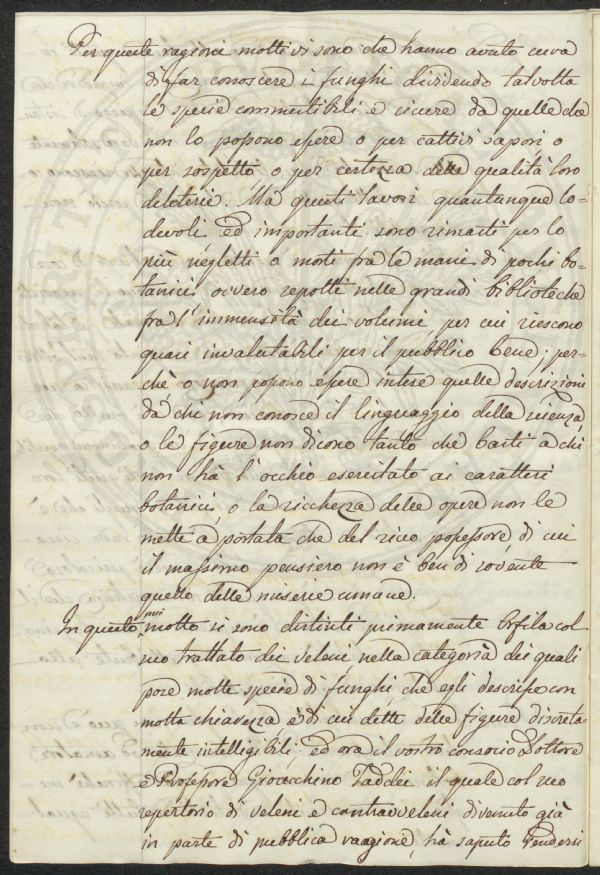 Per queste ragioni molti vi sono che hanno avuto cura
di far conoscere i funghi dividendo talvolta
le specie commestibili e sicure da quelle che
non lo possono essere o per cattivi sapori o
per sospetto o per certezza delle qualità loro
deleterie. Ma questi lavori quantunque lo-
devoli ed importanti sono rimasti per lo
più negletti o moti fra le mani di pochi bo-
tanici ovvero sepolti nelle grandi biblioteche
fra l'immensità dei volumi per cui riescono
quasi invalutabili per il pubblico bene; per-
chè o non possono essere intese quelle descrizioni
da chi non conosce il linguaggio della scienza,
o le figure non dicono tanto che basti a chi
non hà l'occhio esercitato ai caratteri
botanici, o la ricchezza delle opere non le
mette a portata che del ricco possessore di cui
il massimo pensiero non è ben di sovente
quello delle miserie umane.
In questo molto si sono distinti primamente Orfila col
suo trattato dei veleni nella categoria dei quali
pose molte specie di funghi, che egli descrisse con
molta chiarezza e di cui dette delle figure discreta-
mente intelligibili, ed ora il vostro consocio Dottore
e Professore Gioacchino Taddei il quale col suo
repertorio di veleni e contravveleni divenuto già
in parte di pubblica ragione, hà saputo rendersi